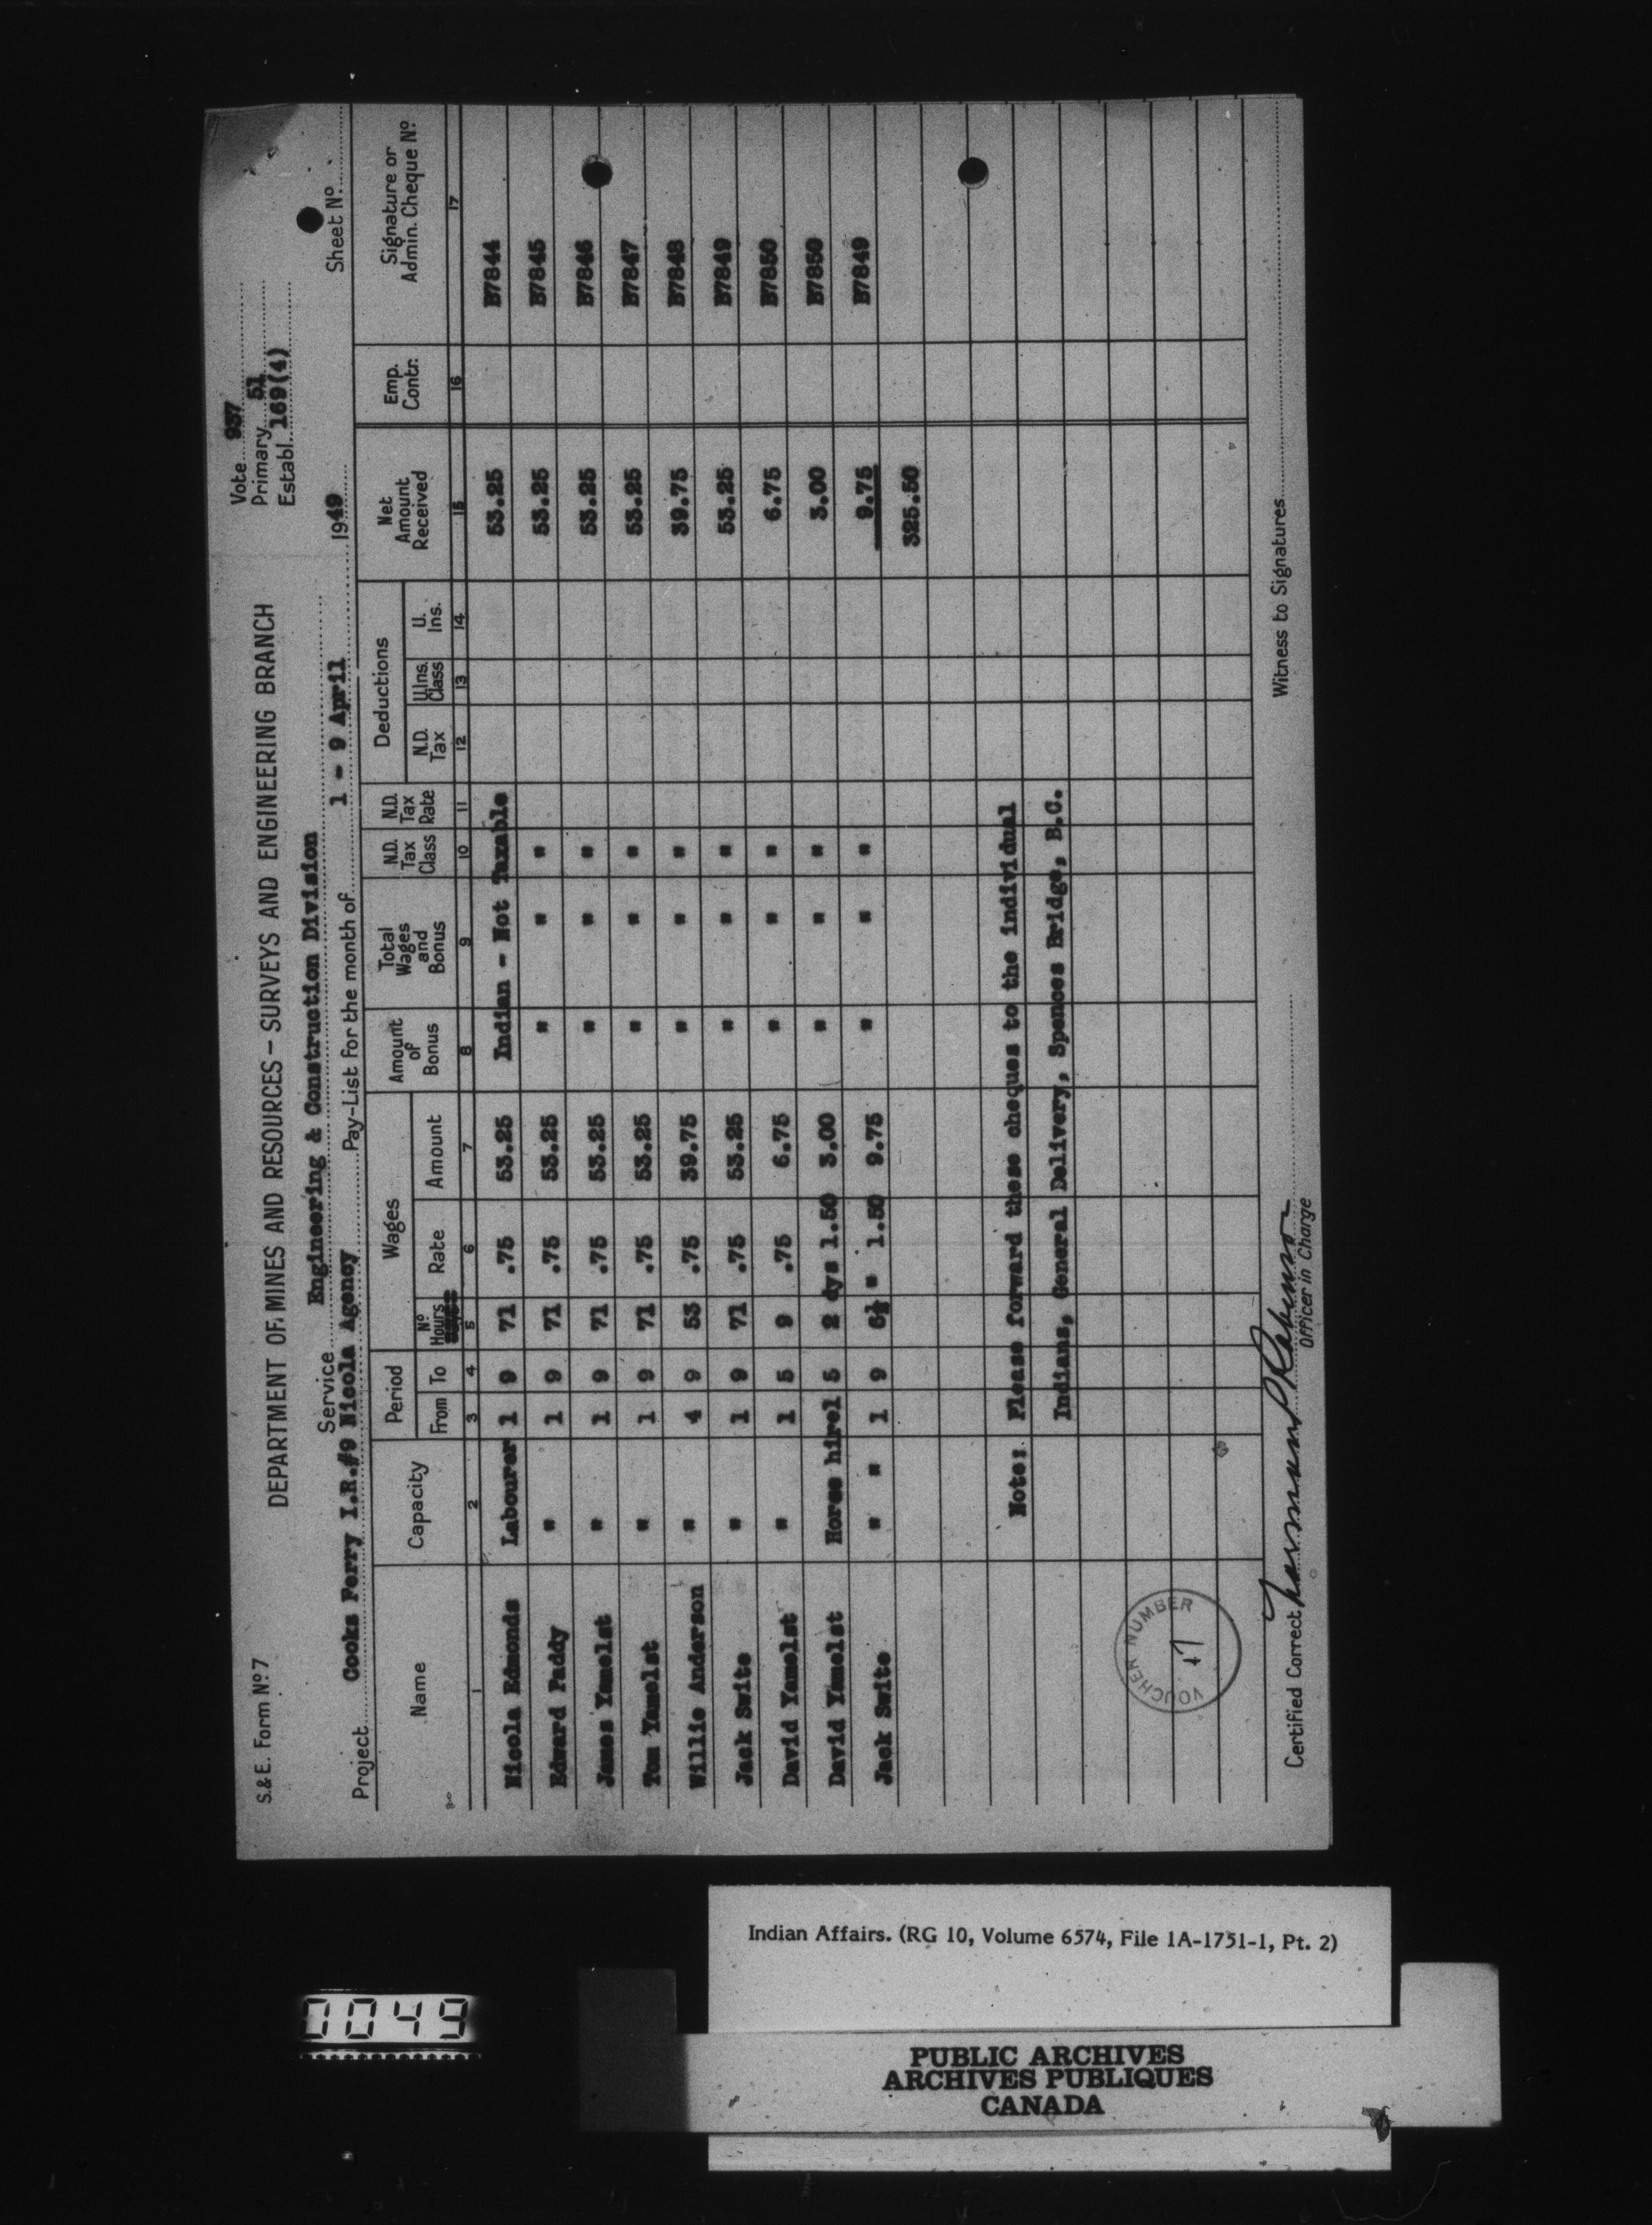 S.& E. Form Nº 7
Vote 937
Primary 51
Establ. 169(4)
DEPARTMENT OF MINES AND RESOURCES - SURVEYS AND ENGINEERING BRANCH
Service Engineering & Construction Division
Sheet Nº
Project Cooks Ferry I.R.#9 Nicola Agency Pay-List for the month of 1 - 9 April 1949
Name Capacity Period Wages Amount of Bonus Total Wages and Bonus N.D. Tax Class N.D. Tax Rate Deductions Net Amount Received Emp. Contr. Signature or Admin. Cheque Nº
From To Nº Hours Rate Amount N.D. Tax U.Ins. Class U. Ins.
1 2 3 4 5 6 7 8 9 10 11 12 13 14 15 16 17
Nicola Edmonds Labourer 1 9 71 .75 53.25 Indian - Not Taxable 53.25 B7844
Edward Paddy " 1 9 71 .75 53.25 " " " 53.25 B7845
James Yamelst " 1 9 71 .75 53.25 " " " 53.25 B7846
Tom Yamelst " 1 9 71 .75 53.25 " " " 53.25 B7847
Willie Anderson " 4 9 53 .75 39.75 " " " 39.75 B7848
Jack Swite " 1 9 71 .75 53.25 " " " 53.25 B7849
David Yamelst " 1 5 9 .75 6.75 " " " 6.75 B7850
David Yamelst Horse hire 1 5 2 dys 1.50 3.00 " " " 3.00 B7850
Jack Swite " " 1 9 6½ " 1.50 9.75 " " " 9.75 B7849
325.50
Note: Please forward these cheques to the individual
Indians, General Delivery, Spences Bridge, B.C.
VOUCHER NUMBER
Certified Correct
Officer in Charge
Witness to Signatures
Indian Affairs. (RG 10, Volume 6574, File 1A-1751-1, Pt. 2)
0049
PUBLIC ARCHIVES
ARCHIVES PUBLIQUES
CANADA